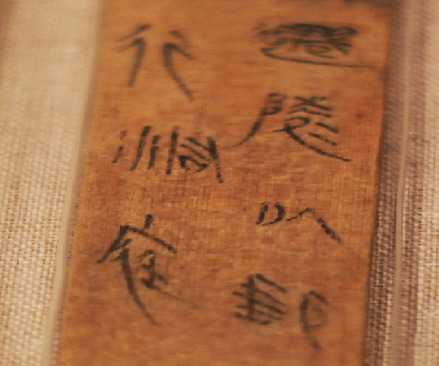 遷陵以郵
行洞庭